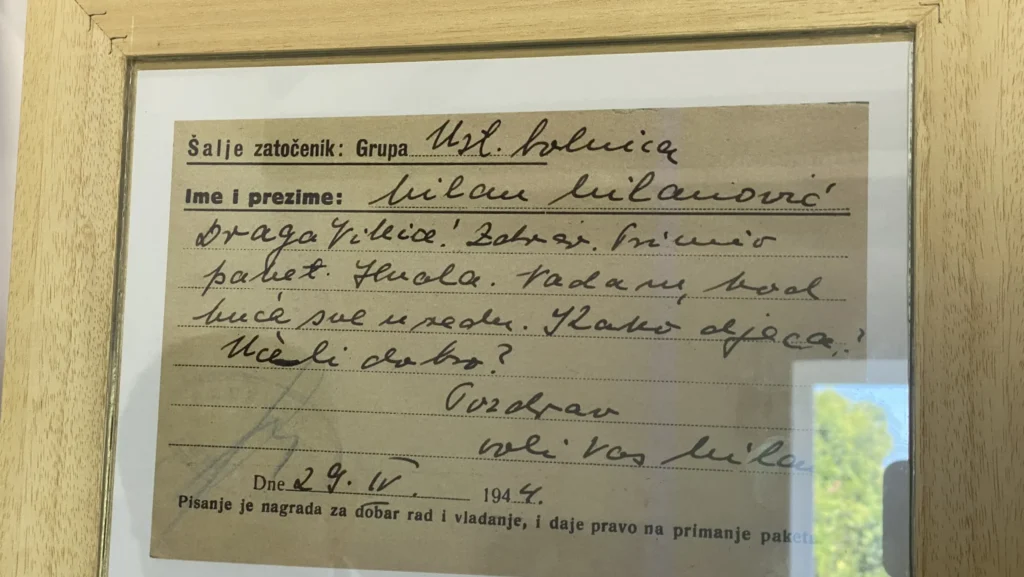 Šalje zatočenik: Grupa Ust. bolnica
Ime i prezime: Milan Milanović
Draga Vikice! Zdrav. Primio
paket. Hvala. Nadam, kod
kuće sve u redu. Kako djeca?
Uče li dobro?
Pozdrav
voli Vas Milan
Dne 29. IV. 1944.
Pisanje je nagrada za dobar rad i vladanje, i daje pravo na primanje paketa